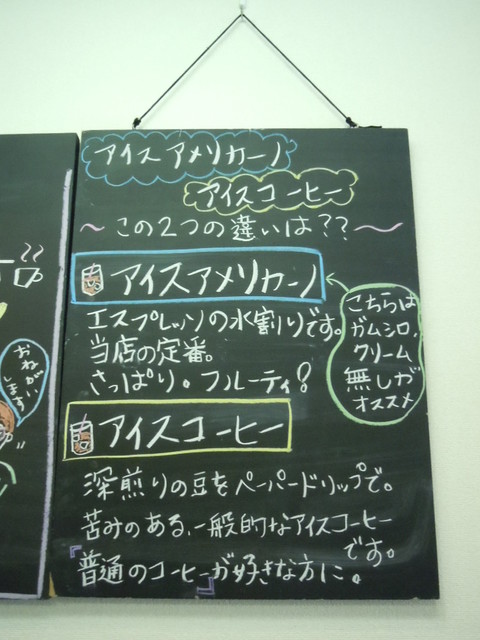 アイスアメリカーノ
アイスコーヒー
～この2つの違いは??～
アイスアメリカーノ
エスプレッソの水割りです。
当店の定番。
さっぱり。フルーティ!
こちらは
ガムシロ,
クリーム
無しが
オススメ
アイスコーヒー
深煎りの豆をペーパードリップで。
苦みのある、一般的なアイスコーヒー
です。
『普通のコーヒーが好きな方に。』
おねがい
します